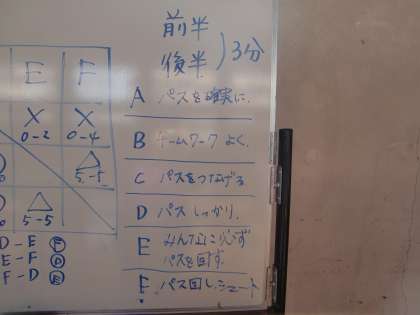 前半
後半 ) 3分
E F
X X
0-2 0-4
△
5-5
△
5-5
D-E Ⓕ
E-F Ⓓ
F-D Ⓔ
A パスを確実に.
B チームワークよく.
C パスをつなげる
D パス しっかり.
E みんなに必ず
パスを回す.
F パス回しシュート